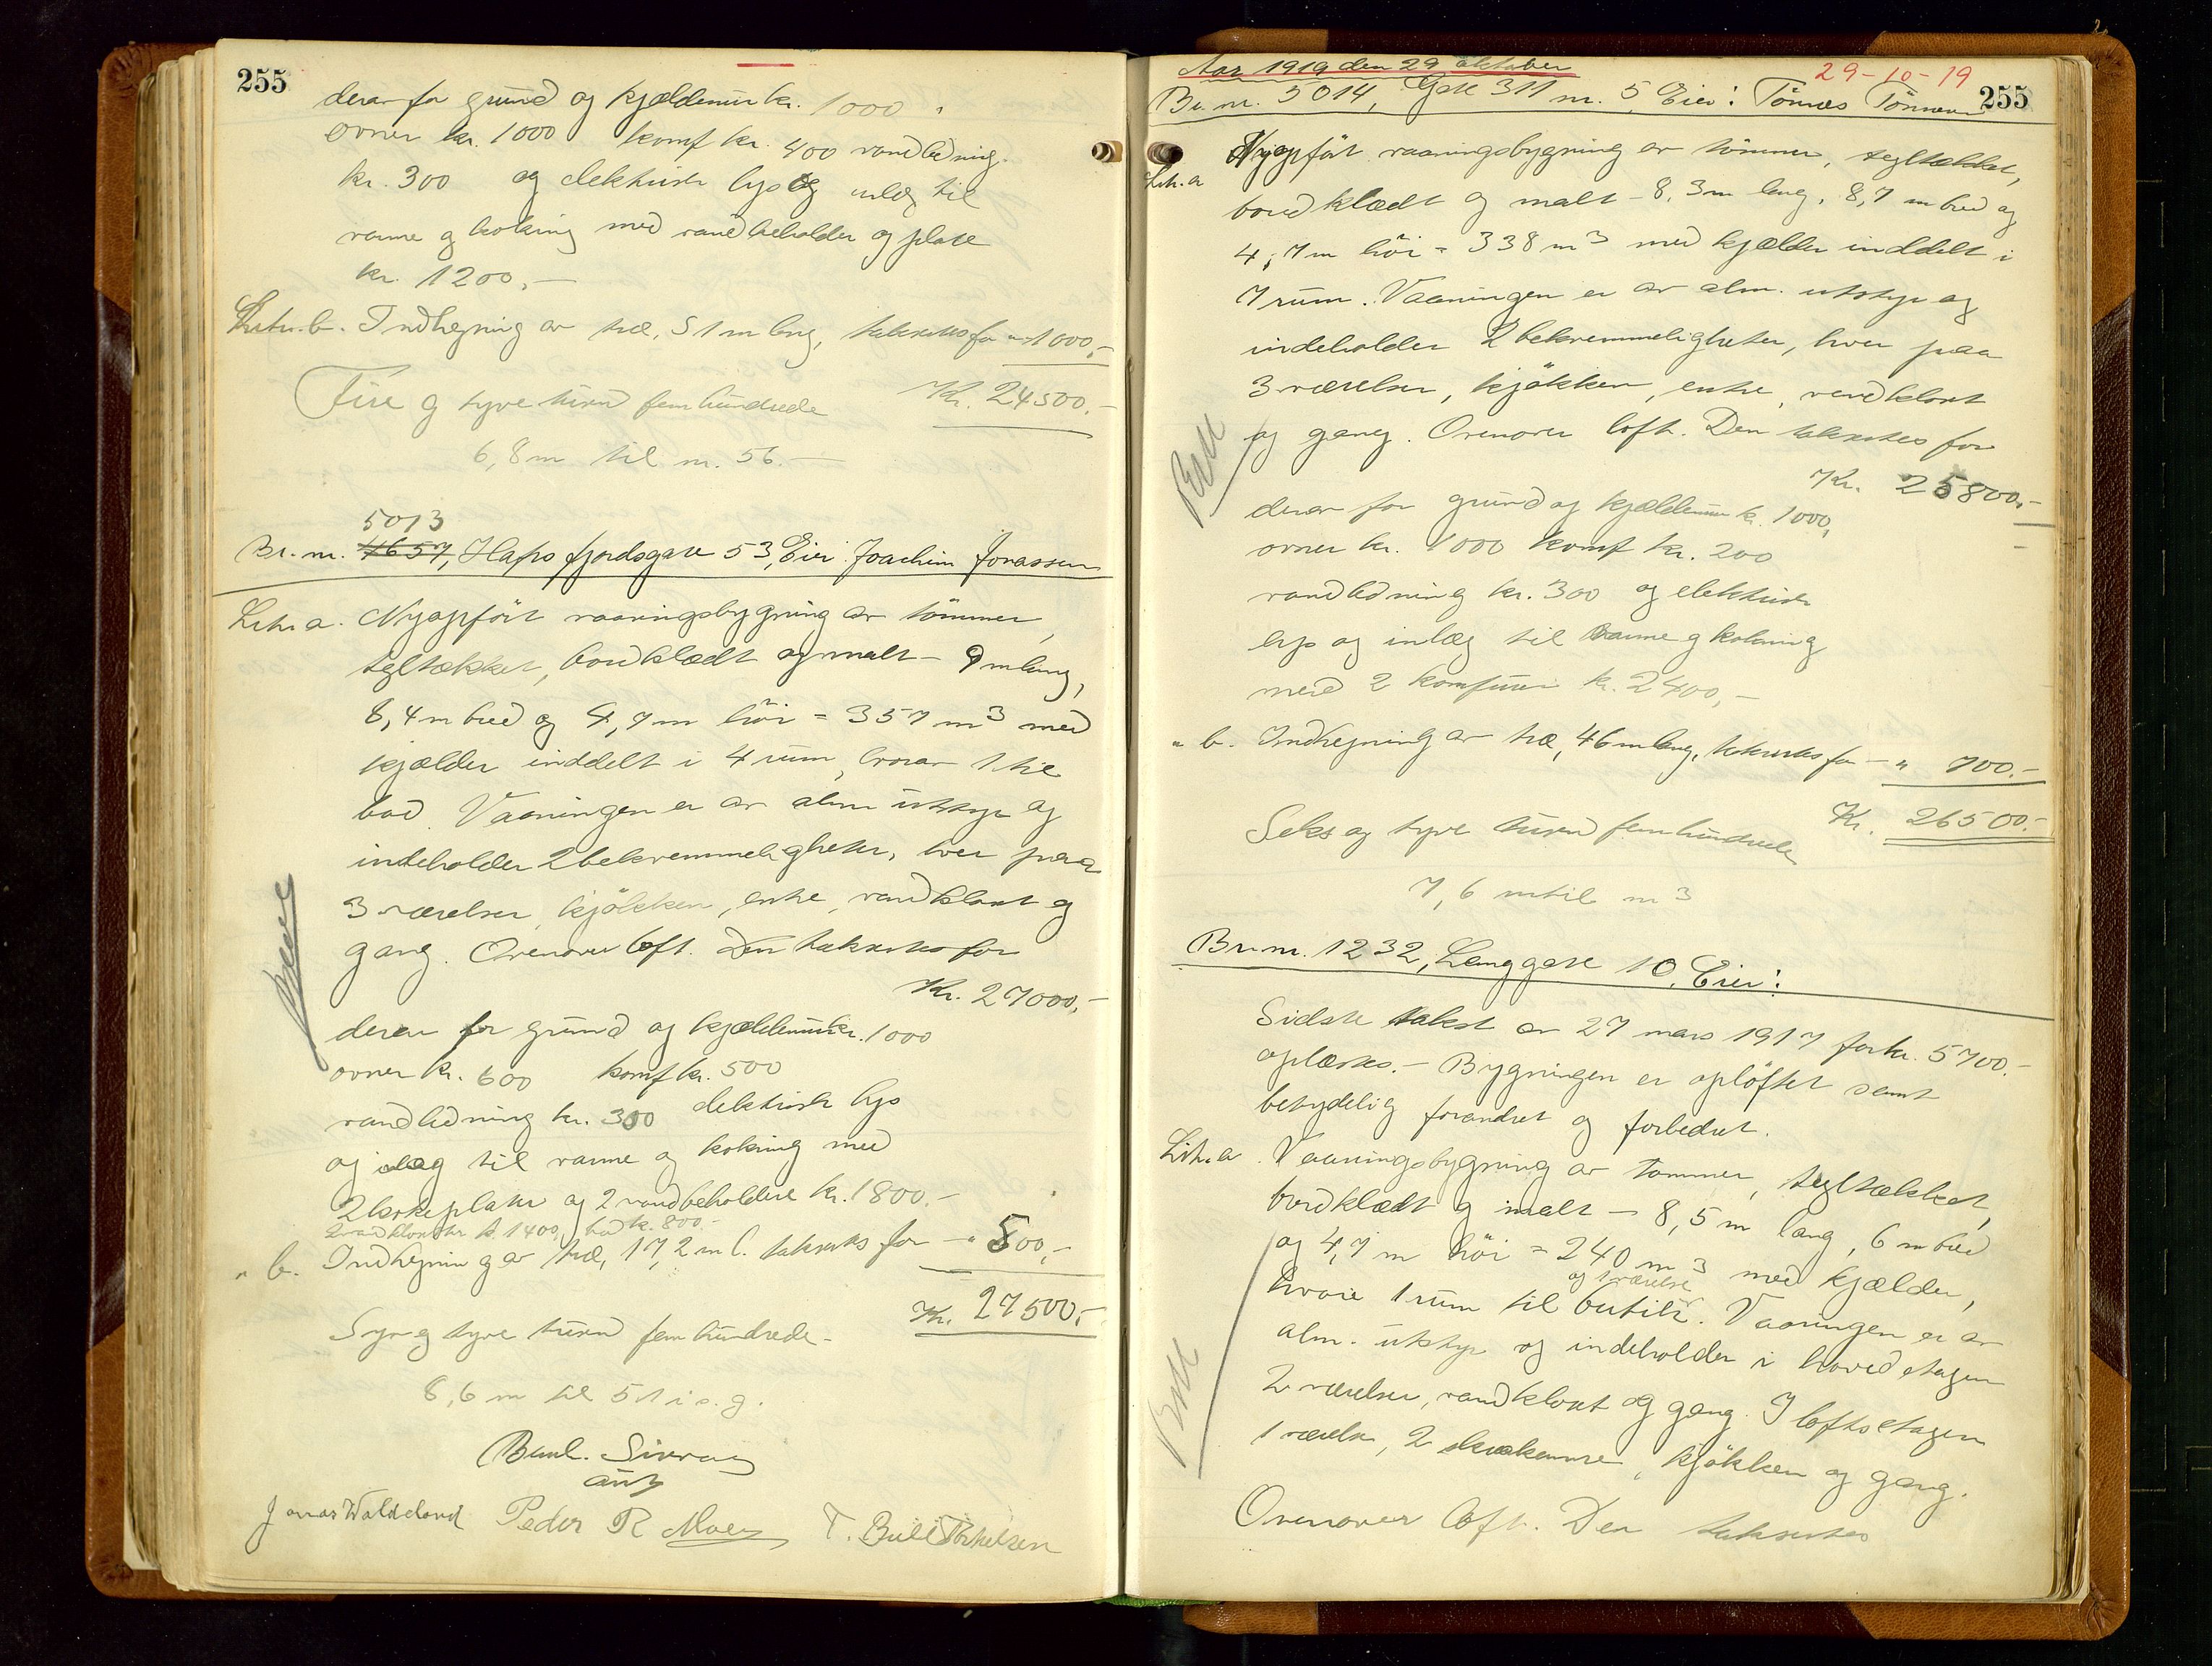 255
derav for grund og kjældemur kr. 1000
ovner kr. 1000 komf kr. 400 vandledning
kr. 300 og elektrisk lys og indlæg til
varme og koking med vandbeholder og plate
kr. 1200,-
Litr. b. Indhegning av træ, 51 m lang, takseres for " 1000,-
Fire og tyve tusind femhundrede Kr. 24500,-
6,8 m til nr. 56.-
5013
Br. nr. 4657, Hafrsfjordsgate 53, Eier Joachim Jonassen
Litr. a. Nyopført vaaningsbygning av tømmer,
tegltækket, bordklædt og malt - 9 m lang,
8,4 m bred og 4,7 m höi = 357 m3 med
kjælder inddelt i 4 rum, hvorav 1 til
bad. Vaaningen er av alm utstyr og
indeholder 2 bekvemmeligheter, hver paa
3 værelser, kjökken, entre, vandklosett og
gang. Ovenover loft. Den takseres for
Kr. 27000,-
derav for grund og kjældemur kr. 1000
ovner kr. 600 komf kr. 500
vandledning kr. 300 elektrisk lys
og ilæg til varme og koking med
2 kokeplater og 2 vandbeholdere kr. 1800.-
2 vandklosetter k. 1400, bad k. 800.-
" b. Indhegning av træ, 17,2 m l. takseres for - " 500,-
Kr. 27500,-
Syv og tyve tusind fem hundrede -
8,6 m til 51 i s. g.
Jonas Waldeland Peder R Moen T. Bull Torkelsen
Aar 1919 den 29 oktober 29-10-19
Br. nr. 5014, Gate 311 nr. 5, Eier: Tönnes Tönnesen 255
Litr. a Nyopfört vaaningsbygning av tömmer, tegltækket,
bordklædt og malt - 8,3 m lang, 8,7 m bred og
4,7 m höi = 338 m3 med kjælder inddelt i
7 rum. Vaaningen er av alm. utstyr og
indeholder 2 bekvemmeligheter, hver paa
3 værelser, kjökken, entre, vandklosett
og gang. Ovenover loft. Den takseres for
Bull
Kr. 25800,-
derav for grund og kjældemur k. 1000,
ovner kr. 1000 komf kr. 200
vandledning kr. 300 og elektrisk
lys og inlæg til varme og kokning
med 2 komfurer kr. 2400,-
" b. Indhegning av træ, 46 m lang, takseres for - " 700.-
Seks og tyve tusind fem hundrede Kr. 26500.-
7,6 m til nr 3
Br. nr. 1232, Langgate 10, Eier:
Sidste takst av 27 mars 1917 for kr. 5700.-
oplæstes. - Bygningen er oplöftet samt
betydelig forandret og forbedret.
Litr. a. Vaaningsbygning av tømmer, tegltækket,
bordklædt og malt - 8,5 m lang, 6 m bred
og 4,7 m höi = 240 m3 med kjælder,
og 1 værelse
hvori 1 rum til butik. Vaaningen er av
alm. utstyr og indeholder i hovedetagen
2 værelser, vandklosett og gang. I loftsetagen
Bull
1 værelse, 2 skraakammer, kjökken og gang.
Ovenover loft. Den takseres